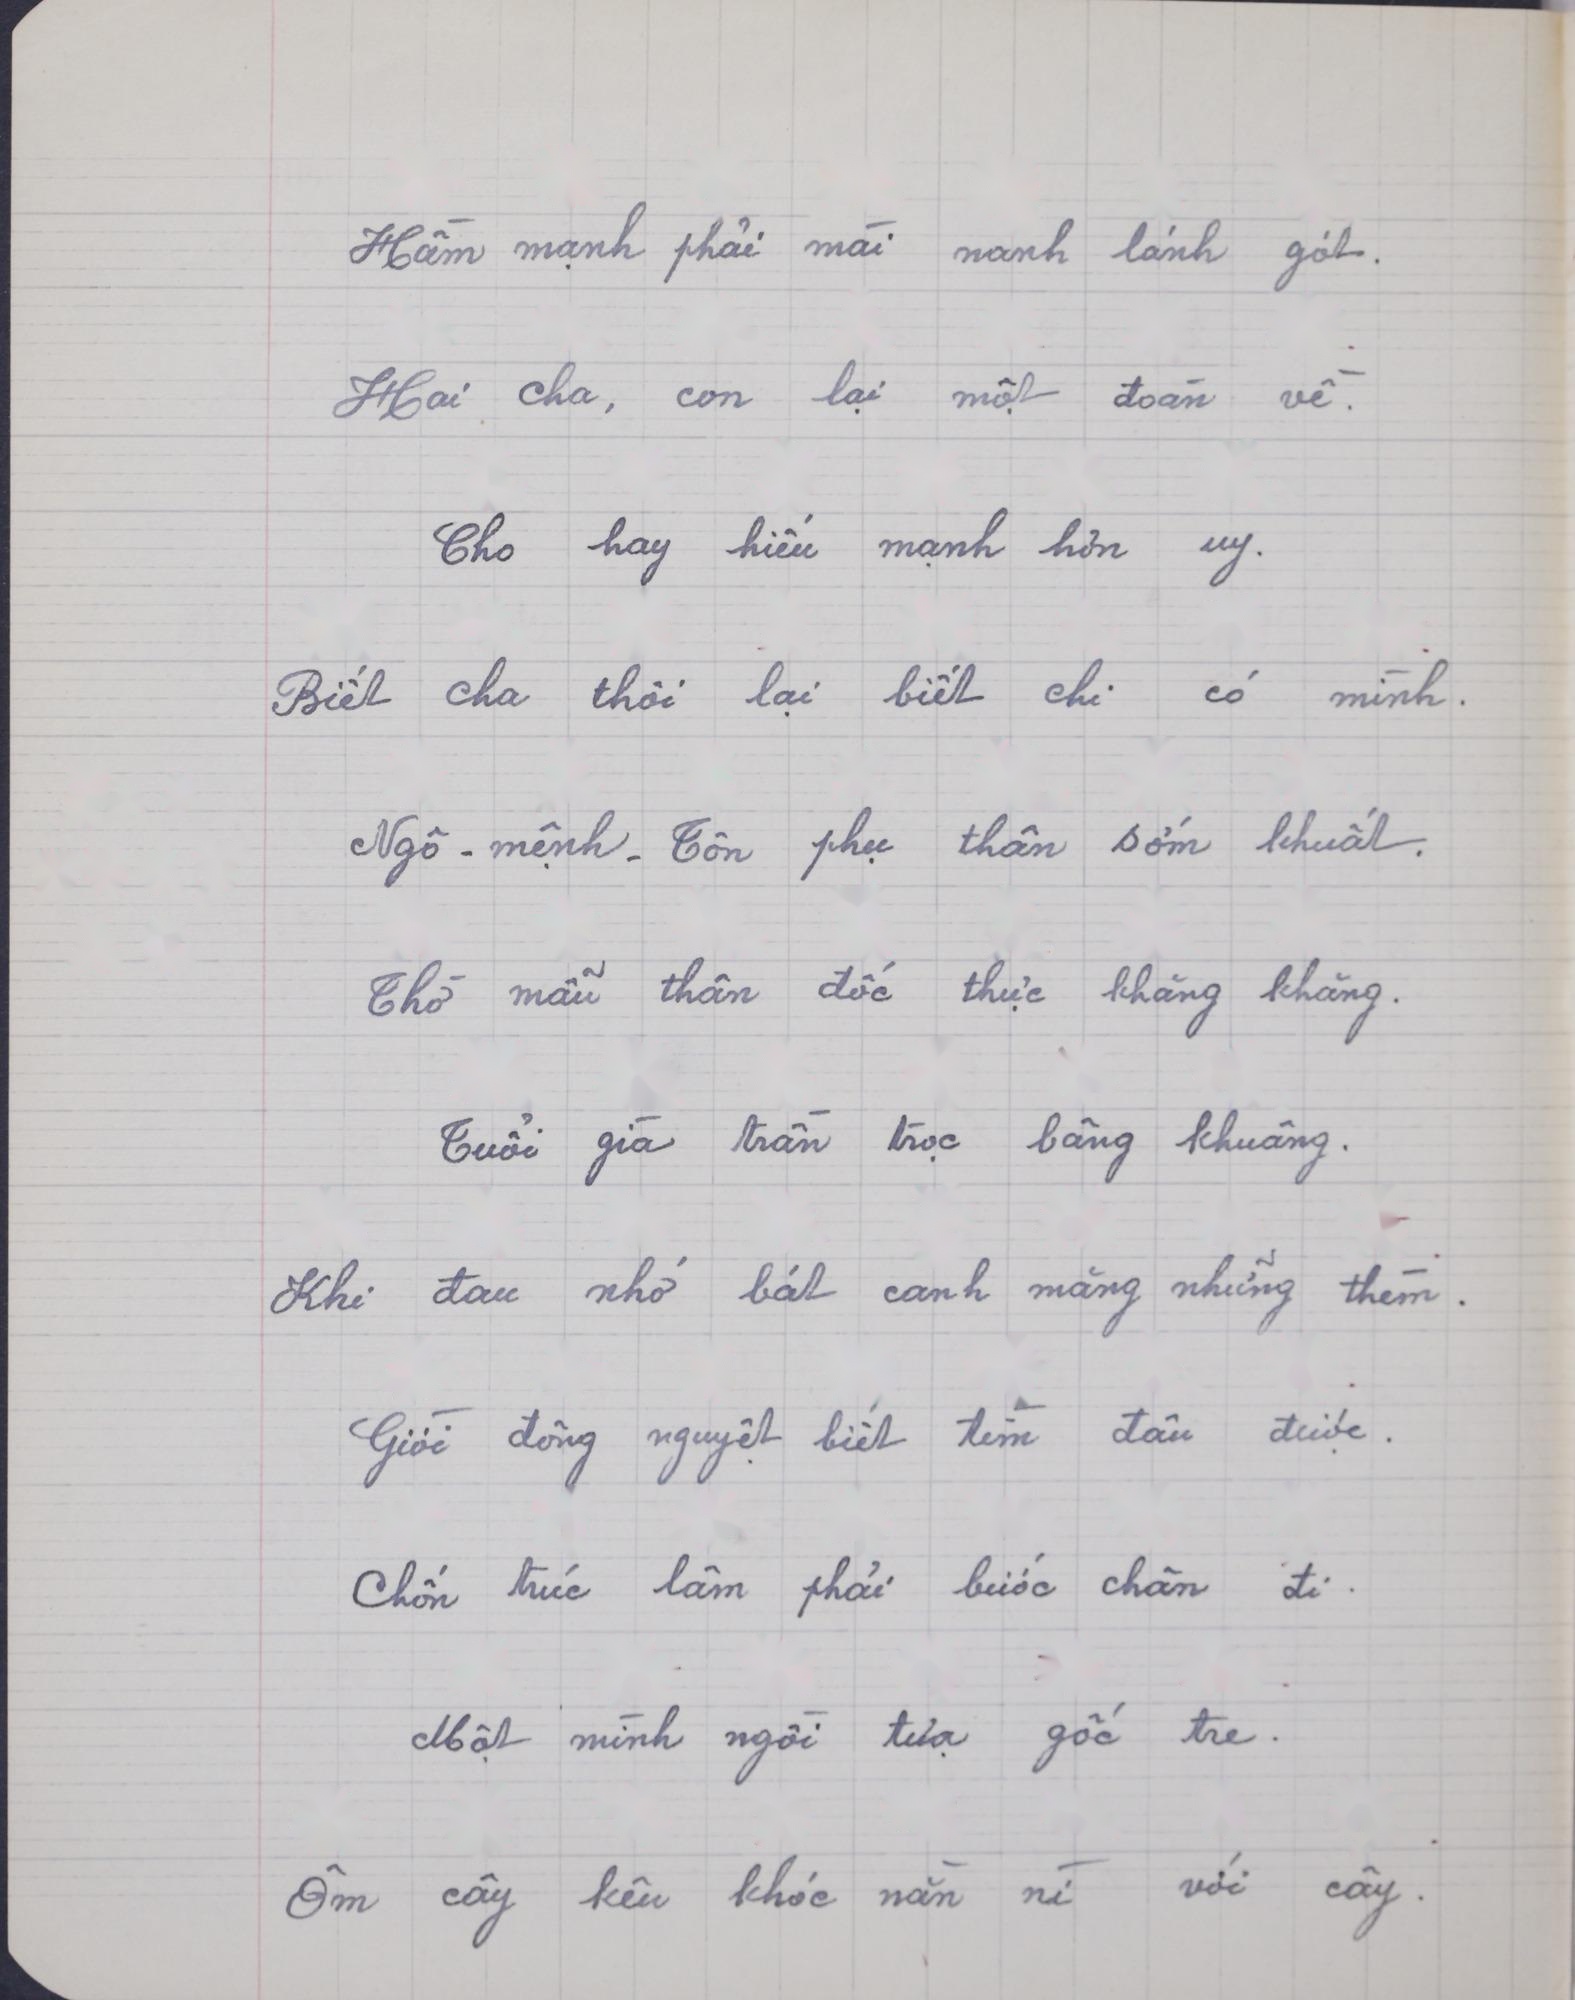 Hầm mạnh phải mài nanh lánh gót.
Hai cha, con lại một đoàn về.
Cho hay hiếu mạnh hơn uy.
Biết cha thôi lại biết chi có mình.
Ngô - mệnh - Tôn phụ thân sớm khuất.
Thờ mẫu thân dốc thực khăng khăng.
Tuổi già trằn trọc bâng khuâng.
Khi đau nhớ bát canh măng những thèm.
Giời đông nguyệt biết tìm đâu được.
Chốn trúc lâm phải bước chân đi.
Một mình ngồi tựa gốc tre.
Ôm cây kêu khóc nằn nì với cây.